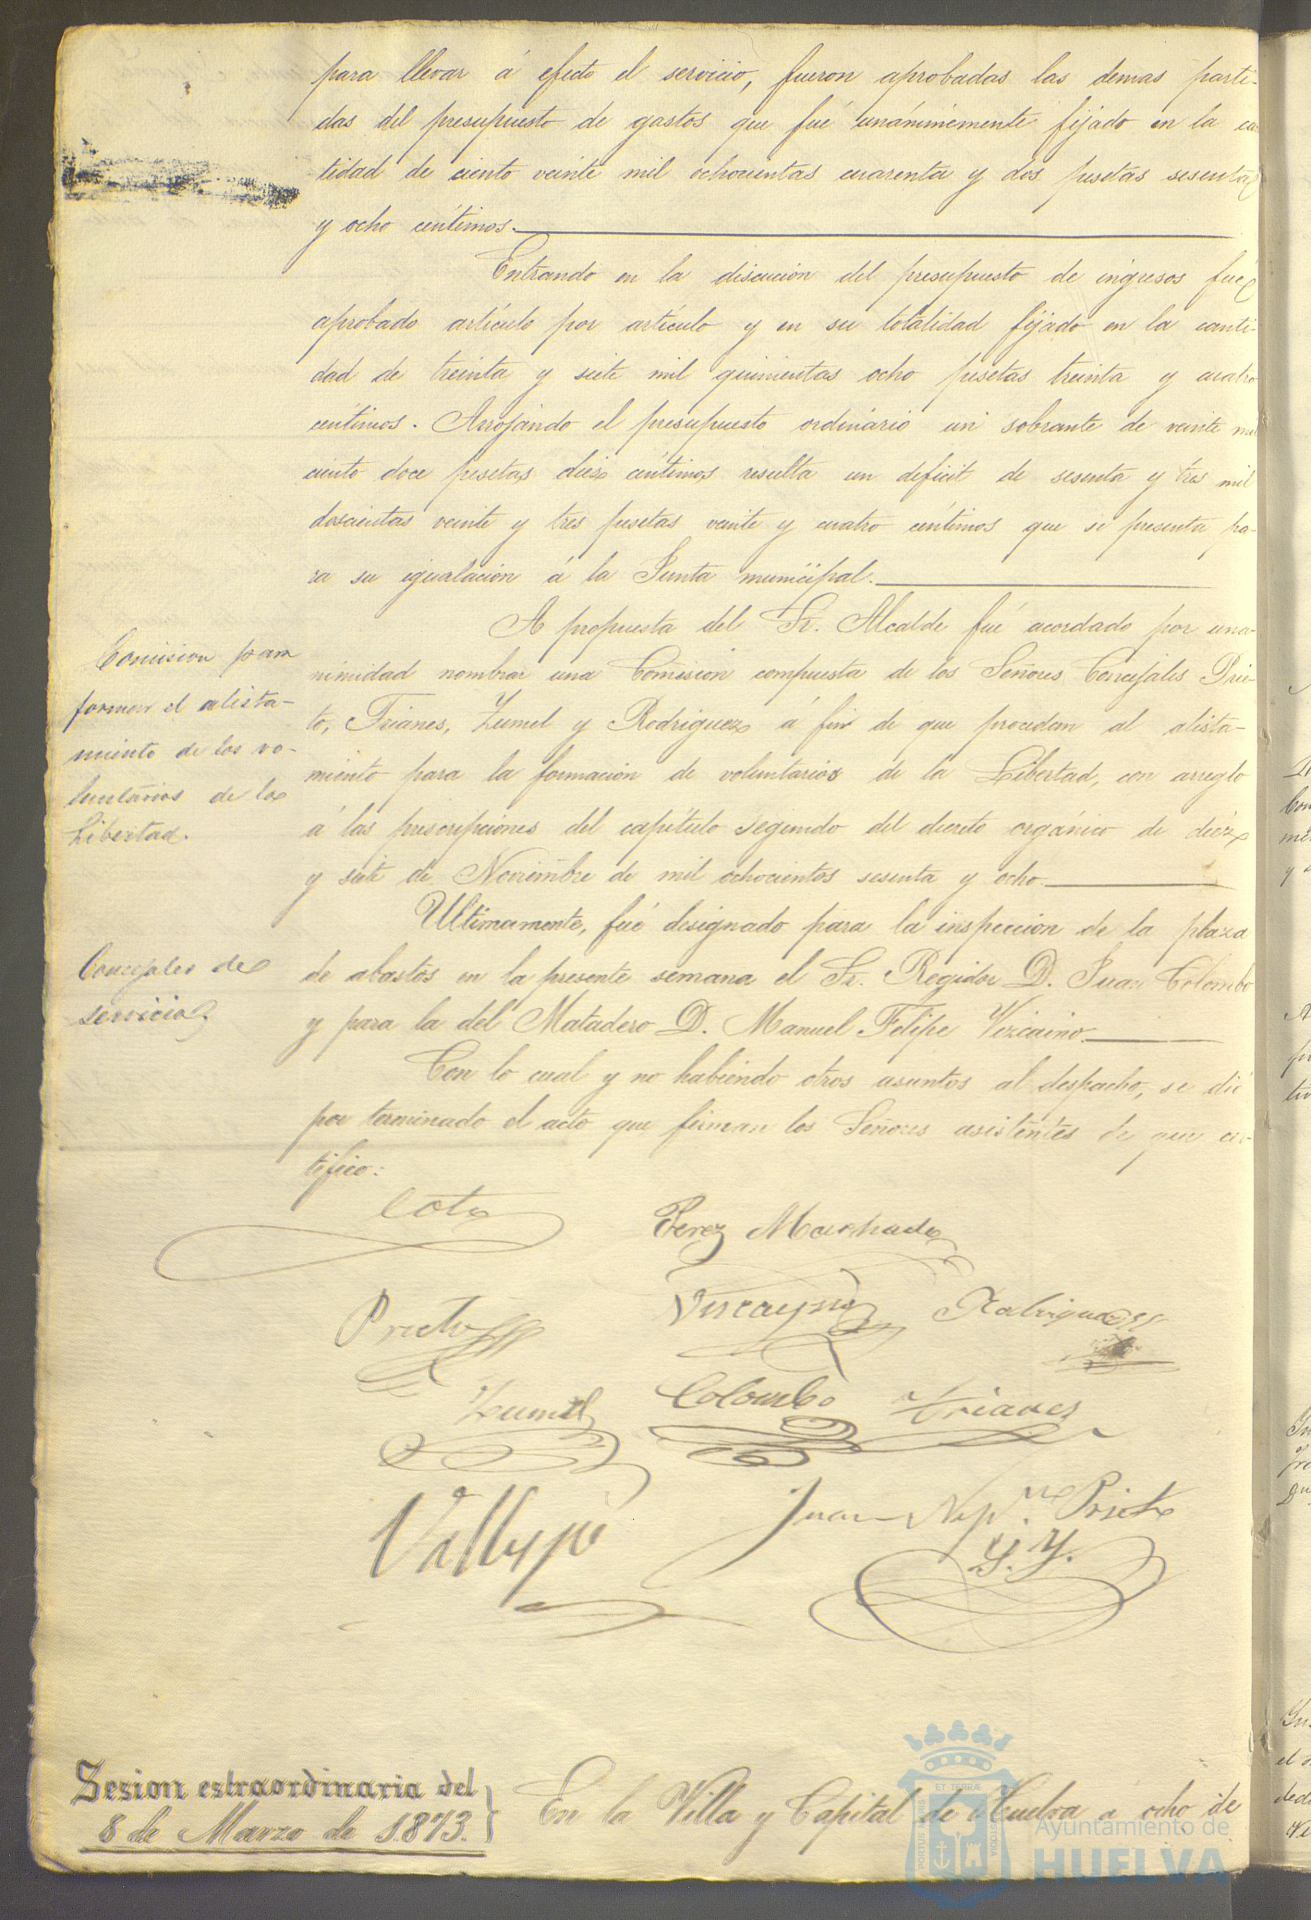 para llevar á efecto el servicio, fueron aprobadas las demas parti-
das del presupuesto de gastos que fué unánimemente fijado en la can
tidad de ciento veinte mil ochocientas cuarenta y dos pesetas sesenta
y ocho centimos.
Entrando en la discucion del presupuesto de ingresos fué
aprobado artículo por artículo y en su totalidad fijado en la canti-
dad de treinta y siete mil quinientas ocho pesetas treinta y cuatro
centimos. Arrojando el presupuesto ordinario un sobrante de veinte mil
ciento doce pesetas diez centimos resulta un deficit de sesenta y tres mil
doscientas veinte y tres pesetas veinte y cuatro centimos que se presenta pa-
ra su igualacion á la Junta municipal.
Comision para
formar el alista-
miento de los vo-
luntarios de la
Libertad.
A propuesta del Sr. Alcalde fué acordado por una-
nimidad nombrar una Comision compuesta de los Señores Concejales Prie-
to, Trianes, Zumel y Rodriguez á fin de que procedan al alista-
miento para la formacion de voluntarios de la Libertad, con arreglo
á las prescripciones del capítulo segundo del decreto orgánico de diez
y siete de Noviembre de mil ochocientos sesenta y ocho.
Concejales de
servicio
Ultimamente, fué designado para la inspeccion de la plaza
de abastos en la presente semana el Sr. Regidor D. Juan Colombo
y para la del Matadero D. Manuel Felipe Vizcaino.
Con lo cual y no habiendo otros asuntos al despacho, se dió
por terminado el acto que firman los Señores asistentes de que cer-
tifico:
Coto
Perez Machado
Prieto
Viscayno
Rodriguez
Zumel
Colombo
Trianes
Vallejo
Juan Nepne. Prieto
Sesion estraordinaria del
8 de Marzo de 1.873.
En la Villa y Capital de Huelva a ocho de
Ayuntamiento de
HUELVA